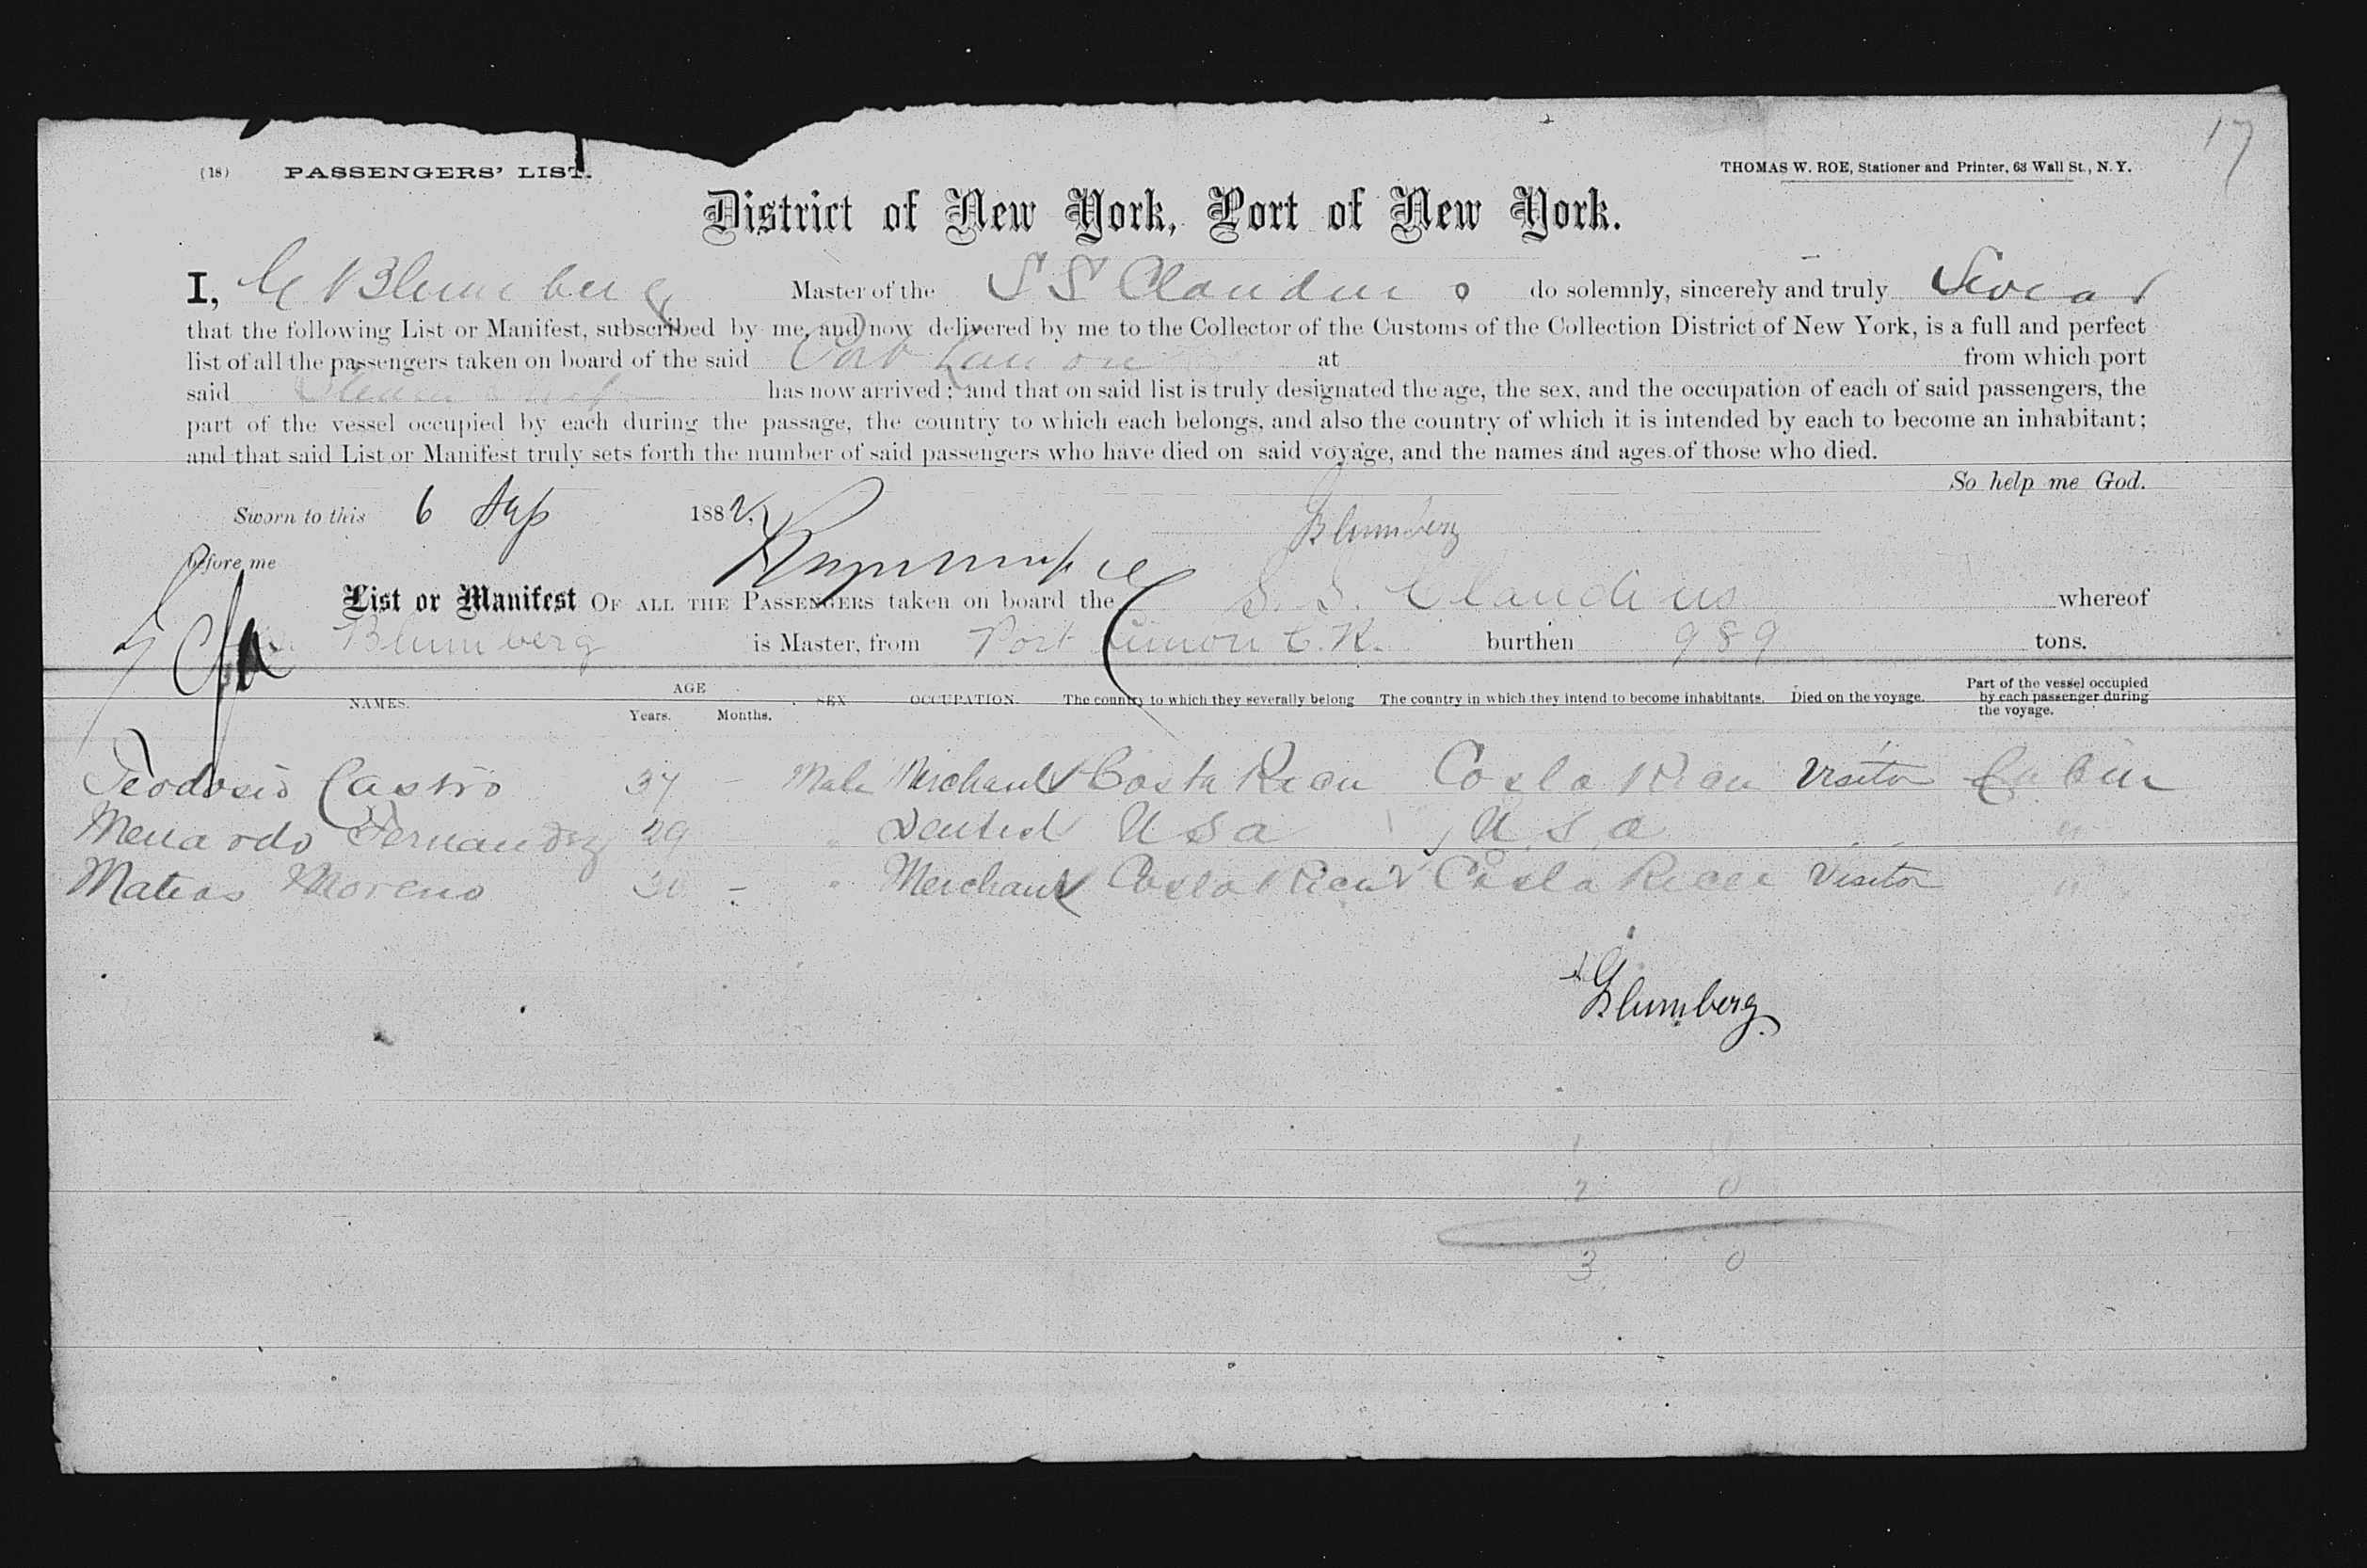 17
(18) PASSENGERS' LIST.
THOMAS W. ROE, Stationer and Printer, 63 Wall St., N.Y.
District of New York, Port of New York.
I, Blumberg Master of the S S Claudius do solemnly, sincerely and truly Swear
that the following List or Manifest, subscribed by me, and now delivered by me to the Collector of the Customs of the Collection District of New York, is a full and perfect
list of all the passengers taken on board of the said Port Limon at from which port
said has now arrived; and that on said list is truly designated the age, the sex, and the occupation of each of said passengers, the
part of the vessel occupied by each during the passage, the country to which each belongs, and also the country of which it is intended by each to become an inhabitant;
and that said List or Manifest truly sets forth the number of said passengers who have died on said voyage, and the names and ages of those who died.
So help me God.
Sworn to this 6 Sep 1882,
Blumberg
Before me
List or Manifest OF ALL THE PASSENGERS taken on board the S. S. Claudius whereof
Blumberg is Master, from Port Limon C.R. burthen 989 tons.
NAMES. AGE Years. Months. SEX OCCUPATION. The country to which they severally belong The country in which they intend to become inhabitants. Died on the voyage. Part of the vessel occupied by each passenger during the voyage.
Teodosio Castro 37 - Male Merchant Costa Rica Costa Rica Visitor Cabin
Menardo Fernandez 29 " Dentist U S a U S a "
Matias Moreno 30 - " Merchant Costa Rica Costa Rica Visitor "
Blumberg
1
2 0
3 0